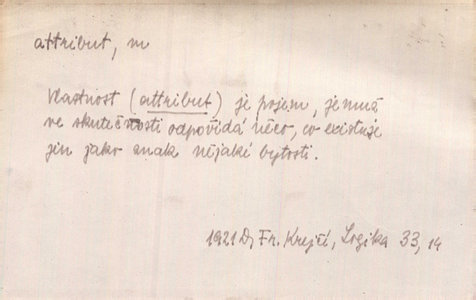 attribut, m
Vlastnost (attribut) je pojem, jemuž
ve skutečnosti odpovídá něco, co existuje
jen jako znak nějaké bytosti.
1921 D, Fr. Krejčí, Logika 33, 14